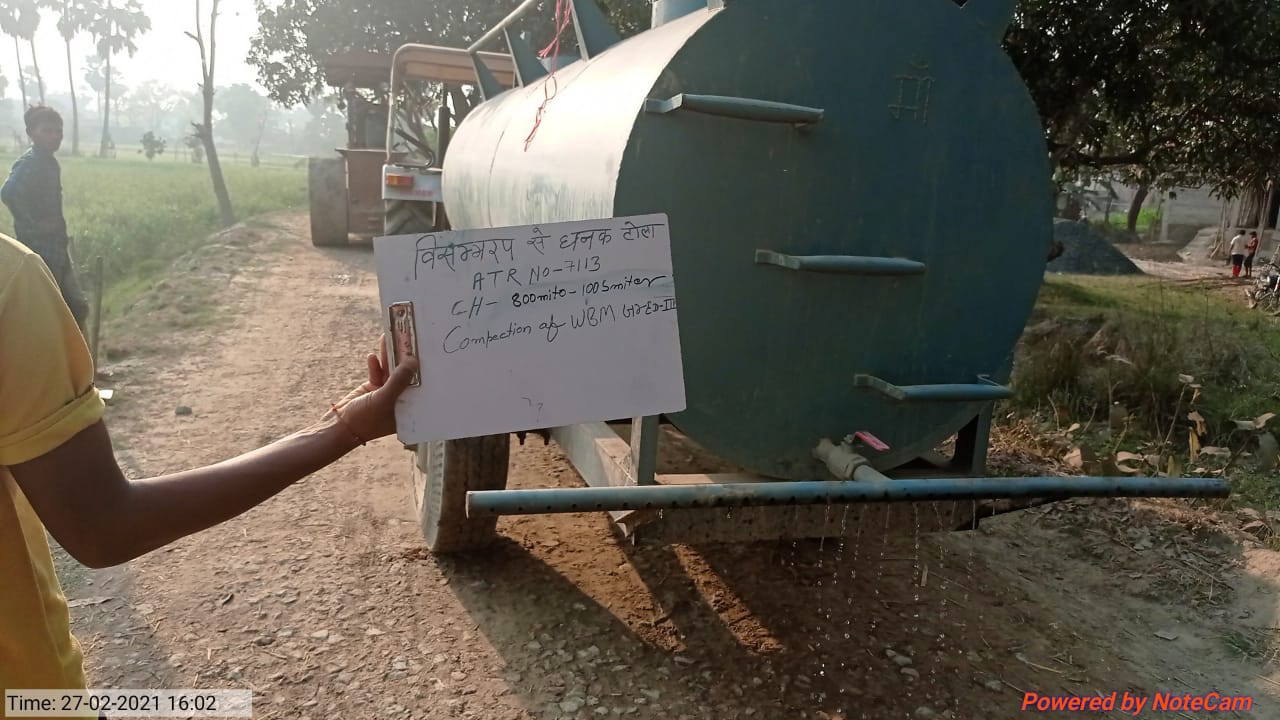 माँ
विसम्भरप से धनक टोला
ATR NO-7113
CH- 800mito-1005miter
Compection of WBM ग्रेड-III
Time: 27-02-2021 16:02
Powered by NoteCam